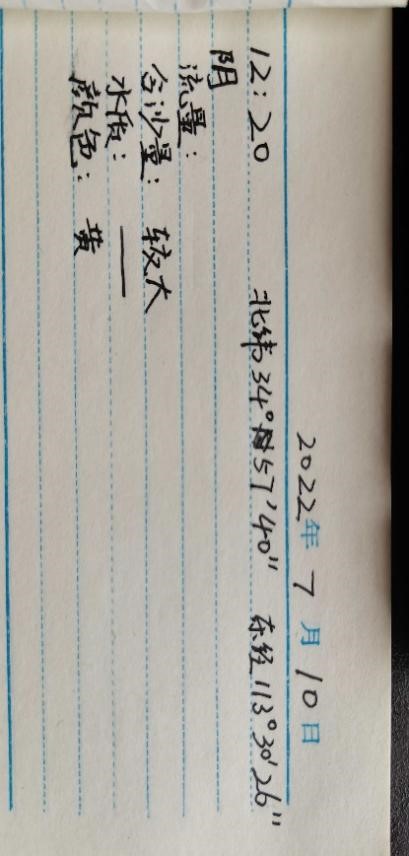 2022年 7 月 10 日
12:20 北纬34°57'40" 东经113°30'26"
阴
流量:
含沙量: 较大
水质: —
颜色: 黄